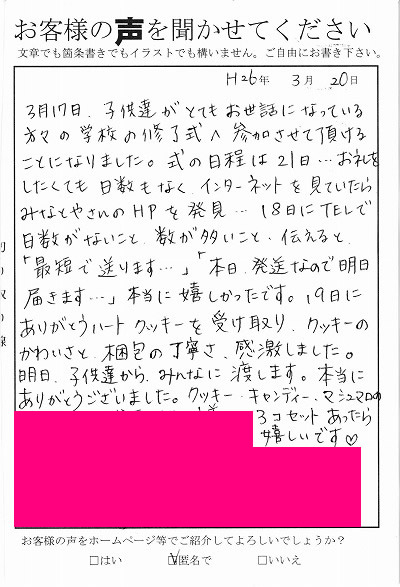 お客様の声を聞かせてください
文章でも箇条書きでもイラストでも構いません。ご自由にお書き下さい。
H26年 3月 20日
3月17日、子供達がとてもお世話になっている
方々の学校の修了式へ参加させて頂ける
ことになりました。式の日程は21日…お礼を
したくても日数もなく、インターネットを見ていたら
みなとやさんのHPを発見…18日にTELで
日数がないこと、数が多いこと、伝えると、
「最短で送ります…」「本日、発送なので明日
届きます…」本当に嬉しかったです。19日に
ありがとうハートクッキーを受け取り、クッキーの
かわいさと、梱包の丁寧さ、感激しました。
明日、子供達から、みんなに渡します。本当に
ありがとうございました。クッキー・キャンディー、マシュマロの
3コセットあったら
嬉しいです♡
お客様の声をホームページ等でご紹介してよろしいでしょうか？
□はい ☑匿名で □いいえ